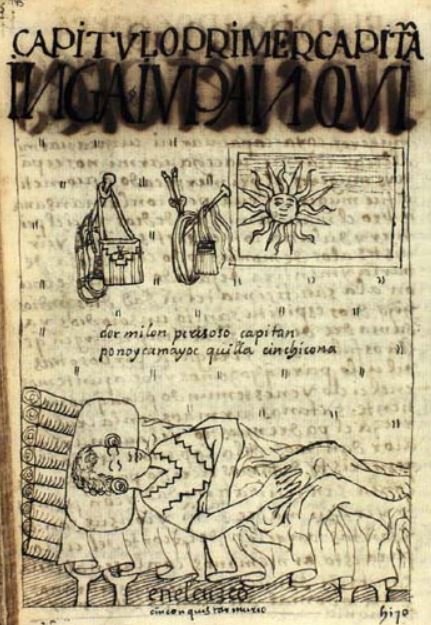 CAPITVLO PRIMER CAPITÃ
INGA IVPANQVI
dormilon peresoso capitan
ponoy camayoc quilla cinchicona
en el cuzco
cin conquistar murio
hijo